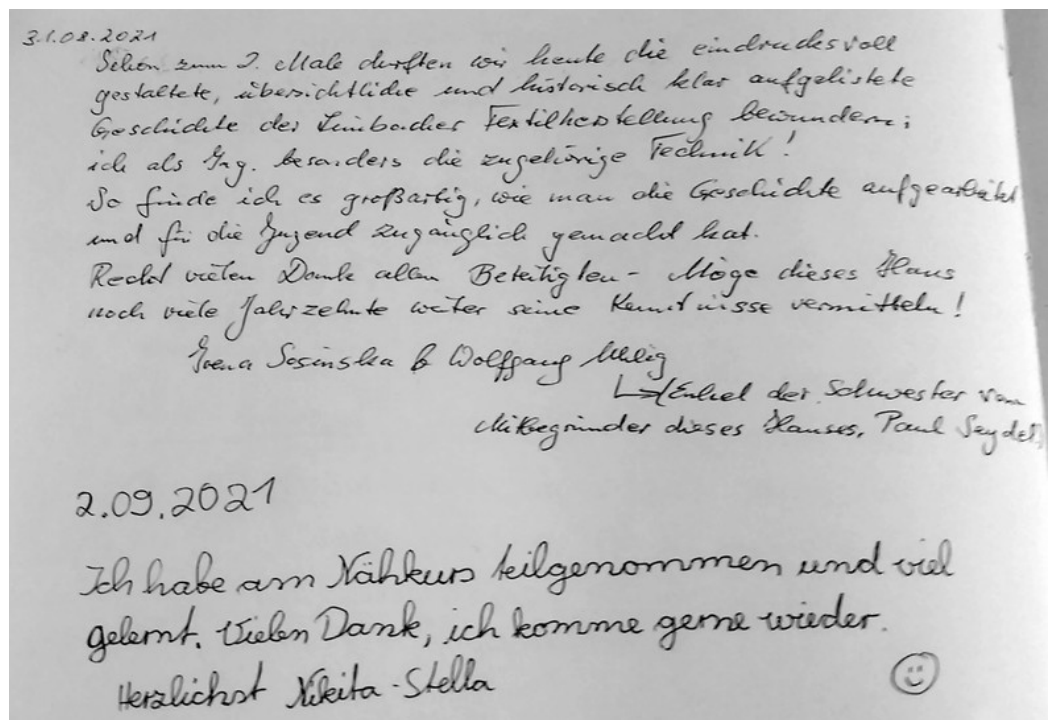 31.08.2021
Schon zum 2. Male durften wir heute die eindrucksvoll
gestaltete, übersichtliche und historisch klar aufgelistete
Geschichte der Limbacher Textilherstellung bewundern;
ich als Ing. besonders die zugehörige Technik!
So finde ich es großartig, wie man die Geschichte aufgearbeitet
und für die Jugend zugänglich gemacht hat.
Recht vielen Dank allen Beteiligten - Möge dieses Haus
noch viele Jahrzehnte weiter seine Kenntnisse vermitteln!
Sosinska & Wolfgang Uhlig
↳ (Enkel der Schwester vom
Mitbegründer dieses Hauses, Paul Seydel)
2.09.2021
Ich habe am Nähkurs teilgenommen und viel
gelernt. Vielen Dank, ich komme gerne wieder.
Herzlichst Nikita-Stella ☺